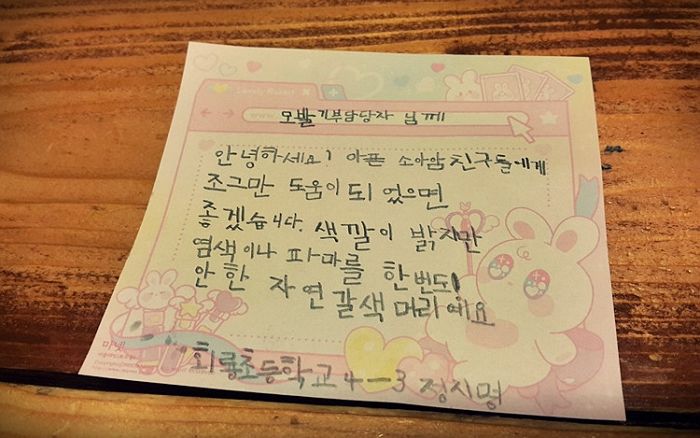 Lovely Rabbit
www.
모발기부담당자 님께
안녕하세요! 아픈 소아암 친구들에게
조그만 도움이 되었으면
좋겠습니다. 색깔이 밝지만
염색이나 파마를 한번도!
안 한 자연갈색머리예요
미넷
회룡초등학교 4-3 정시명